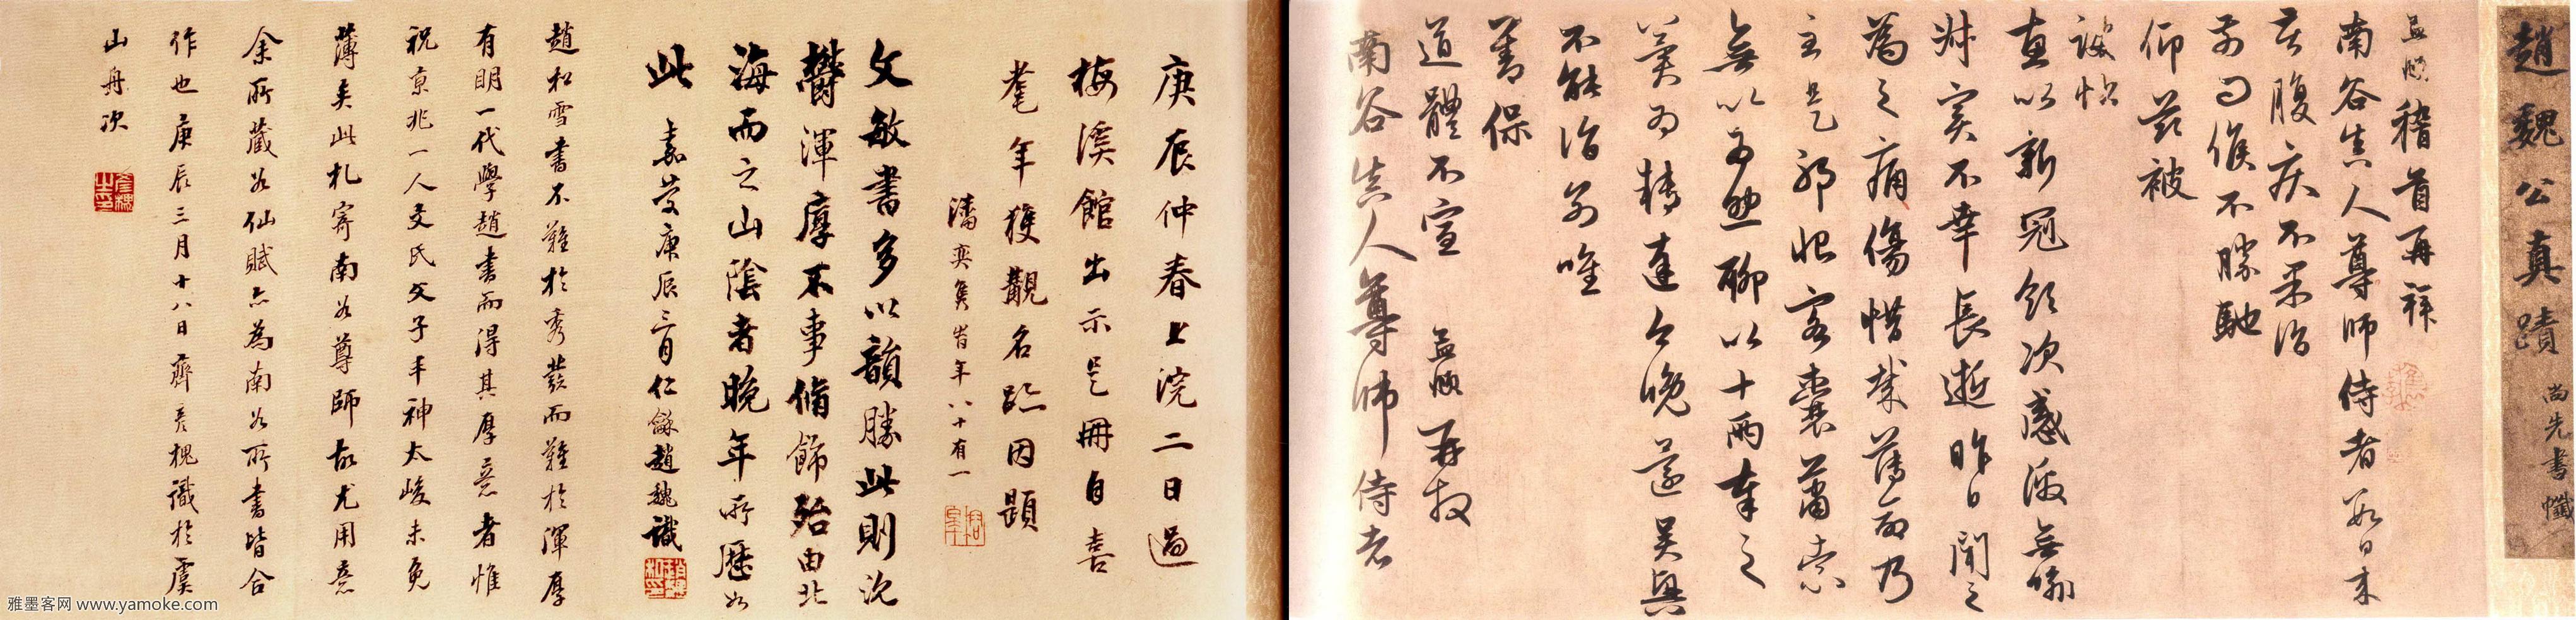 趙魏公真蹟
尚先書籤
孟頫稽首再拜
南谷真人尊師侍者數日來
苦腹疾不果治
前問候不勝馳
仰茲被
誨帖
惠以新冠領次感激無喻
舜實不幸長逝昨日聞之
為之痛傷惜哉蒋兩乃
主是耶收客囊蕭索
無以為助聊以十兩奉之
冀為轉達今晚還吳興
不能詣前唯
善保
道體不宣 孟頫再拜
南谷真人尊師侍者
庚辰仲春上浣二日過
梅溪館出示是冊自喜
耄年獲觀名跡因題
潘奕雋 時年八十有一
文敏書多以韻勝此則沉
鬱渾厚不事脩飾殆由北
海而之山陰者晚年所歷如
此 嘉慶庚辰三月仁龢趙魏識
趙松雪書不難於秀發而難於渾厚
有明一代學趙書而得其厚意者惟
祝京兆一人文氏父子丰神太峻未免
薄矣此札寄南谷尊師故尤用意
余所藏登仙賦亦為南谷所書皆合
作也庚辰三月十八日齊彥槐識於虞
山舟次
雅墨客网 www.yamoke.com